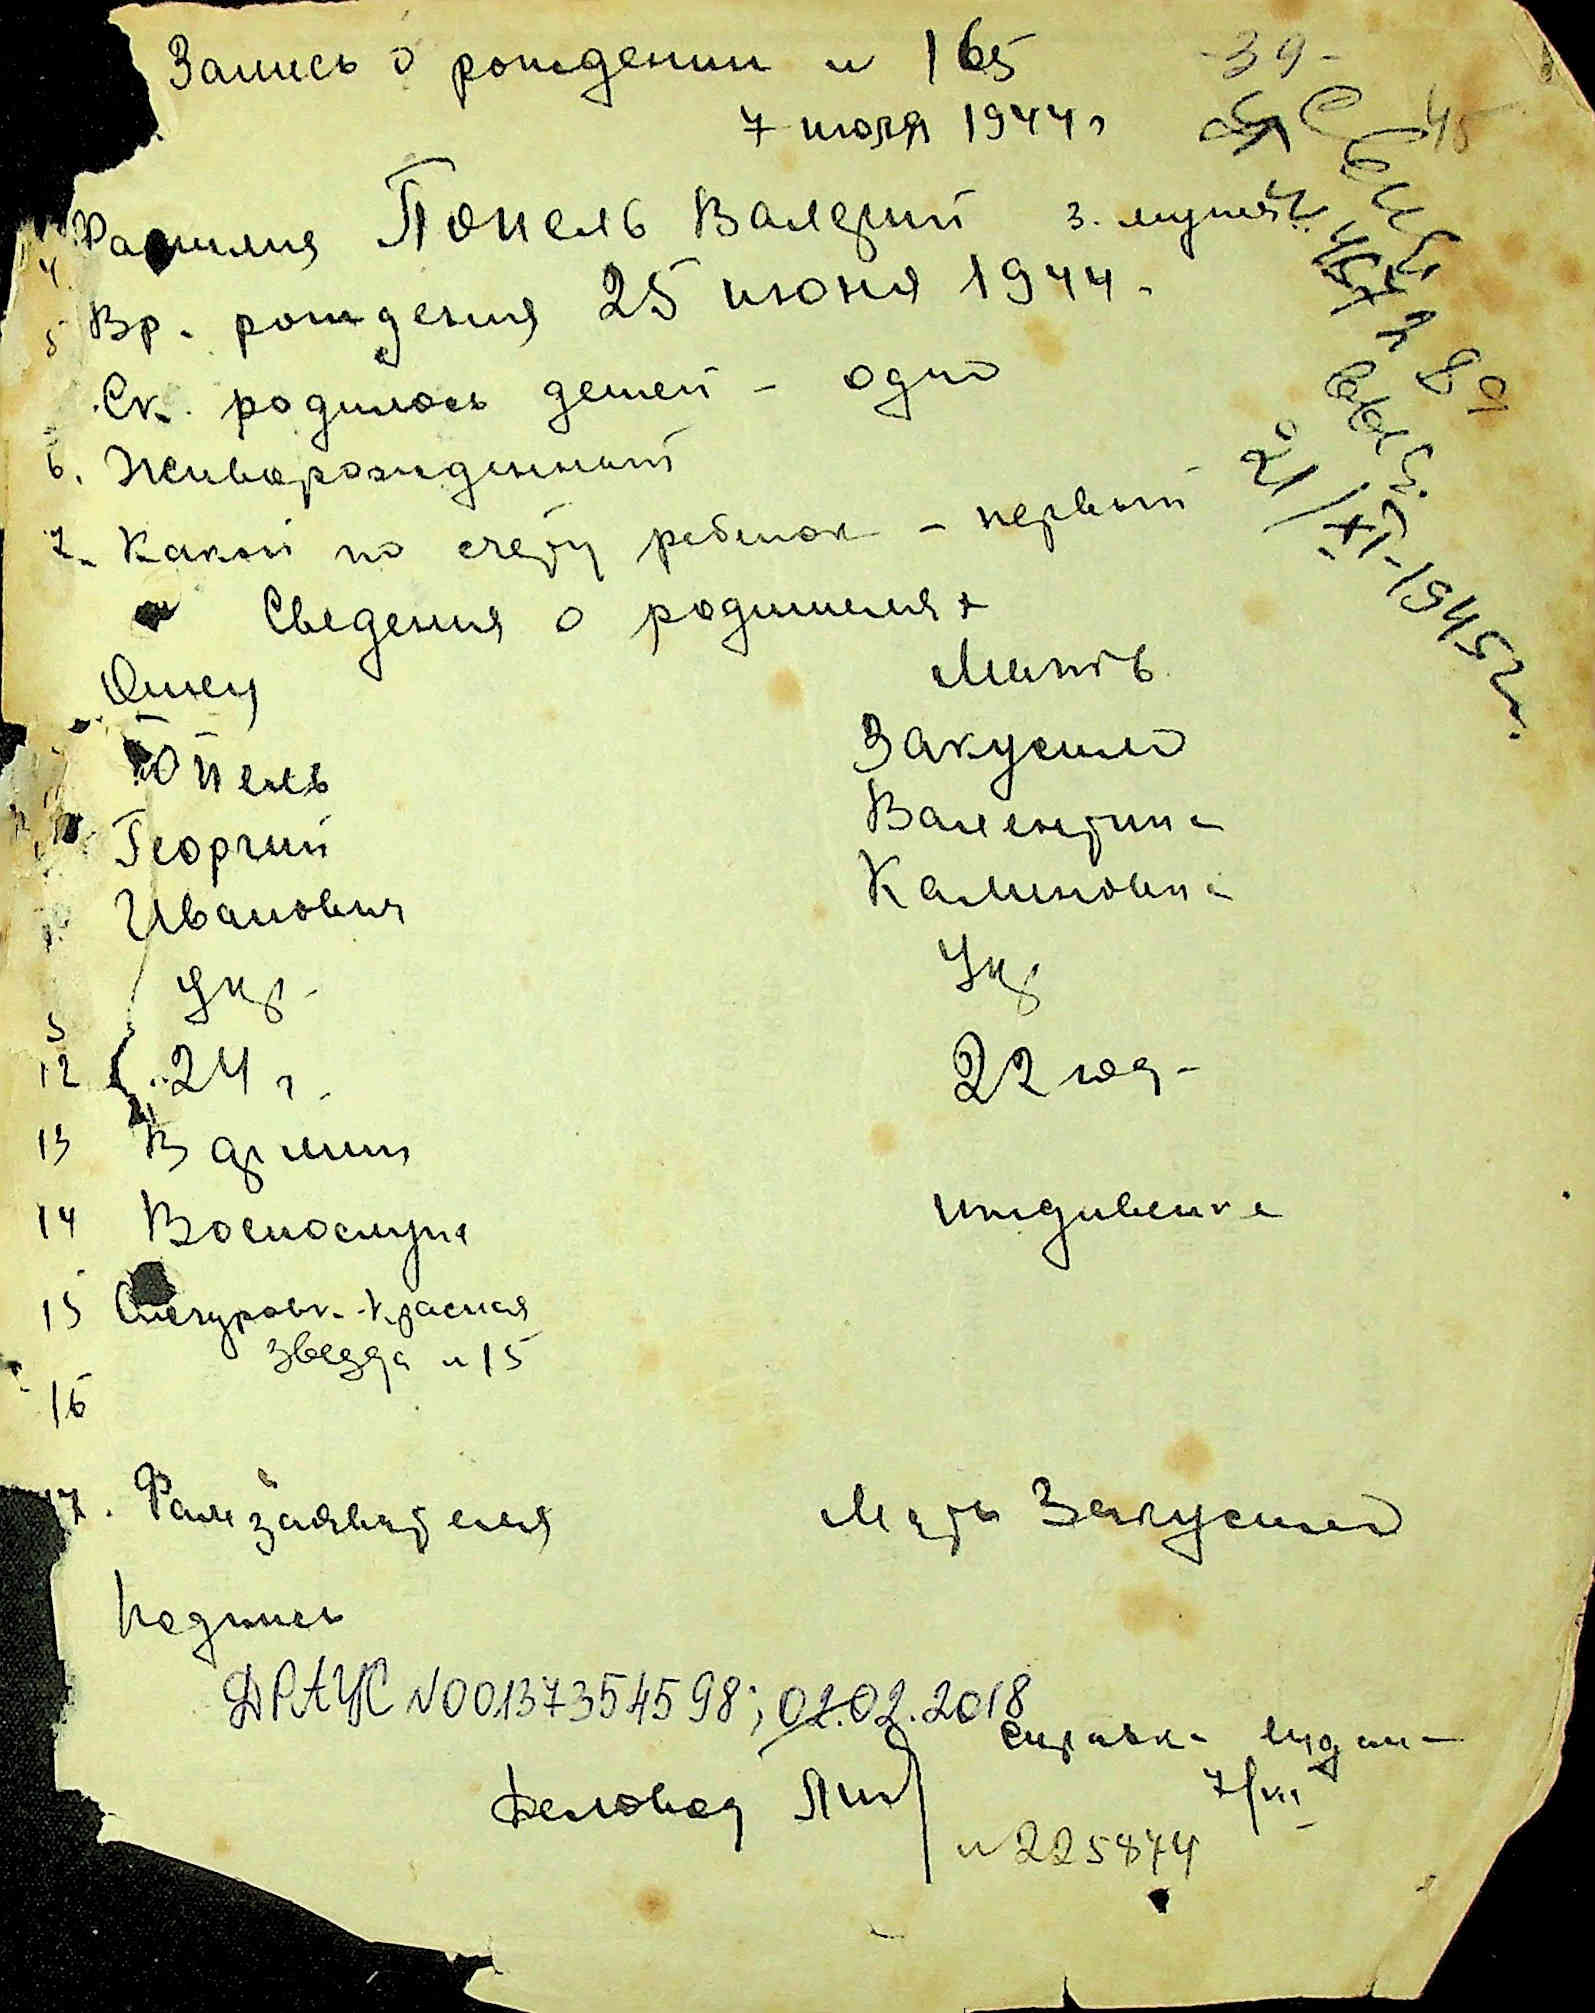 Запись о рождении № 165
-39-
7 июля 1944 г
45
Фамилия Попель Валерий 3. мужск.
4
5 Вр. рождения 25 июня 1944.
Ск. родилось детей - одно
6. Живорожденный
7. Какой по счету ребенок - первый
21/XI-1945 г.
Сведения о родителях
Отец Мать
Попель Закусило
Георгий Валентина
Иванович Калиновна
Укр. Укр
12 24 г. 22 год.
13 В армии
14 Военнослуж иждивенка
15 Снегуровк. Красная
звезда № 15
16
17. Фам заявителя Мать Закусило
Подпись
ДРАЦС №00137354598; 02.02.2018
справка выдана
7/VII
Деловод
№ 225874